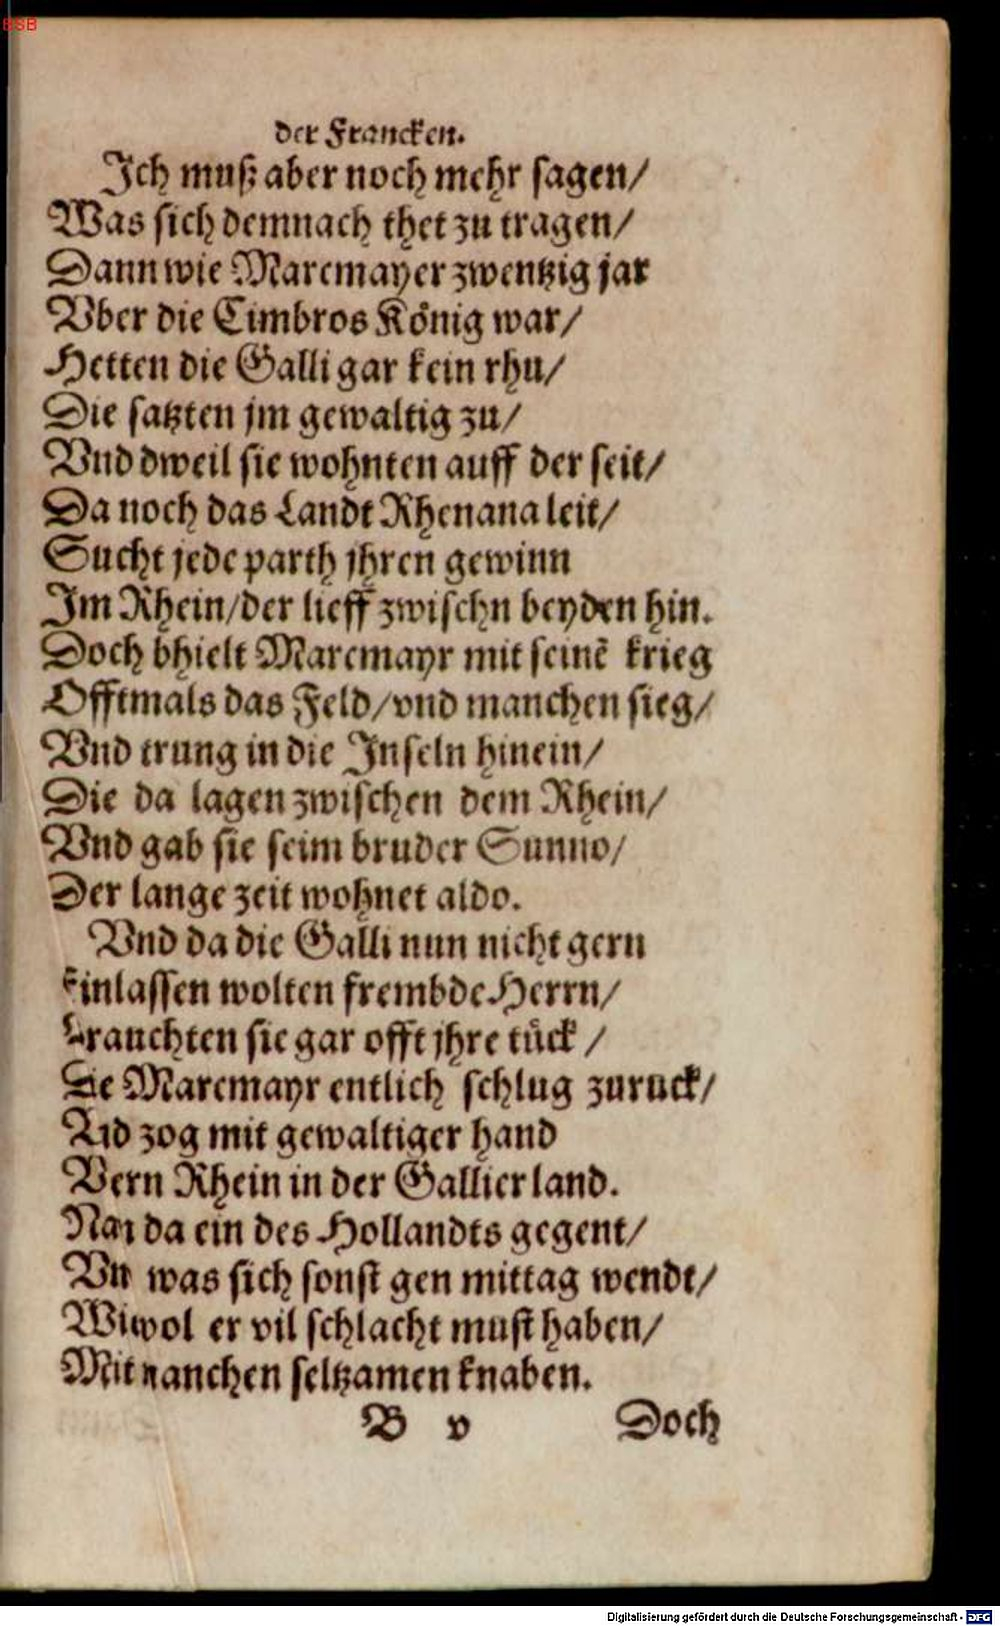 BSB
der Francken.
Ich muß aber noch mehr sagen/
Was sich demnach thet zu tragen/
Dann wie Marcmayer zwentzig jar
Vber die Cimbros König war/
Hetten die Galli gar kein rhu/
Die satzten jm gewaltig zu/
Vnd dweil sie wohnten auff der seit/
Da noch das Landt Rhenana leit/
Sucht jede parth jhren gewinn
Im Rhein/der lieff zwischn beyden hin.
Doch bhielt Marcmayr mit seinē krieg
Offtmals das Feld/vnd manchen sieg/
Vnd trung in die Inseln hinein/
Die da lagen zwischen dem Rhein/
Vnd gab sie seim bruder Sunno/
Der lange zeit wohnet aldo.
Vnd da die Galli nun nicht gern
Einlassen wolten frembde Herrn/
Brauchten sie gar offt jhre tück /
Die Marcmayr entlich schlug zuruck/
zog mit gewaltiger hand
Vbern Rhein in der Gallier land.
Nam da ein des Hollandts gegent/
Vn was sich sonst gen mittag wendt/
Wiwol er vil schlacht must haben/
Mit manchen seltzamen knaben.
B v Doch
Digitalisierung gefördert durch die Deutsche Forschungsgemeinschaft - DFG